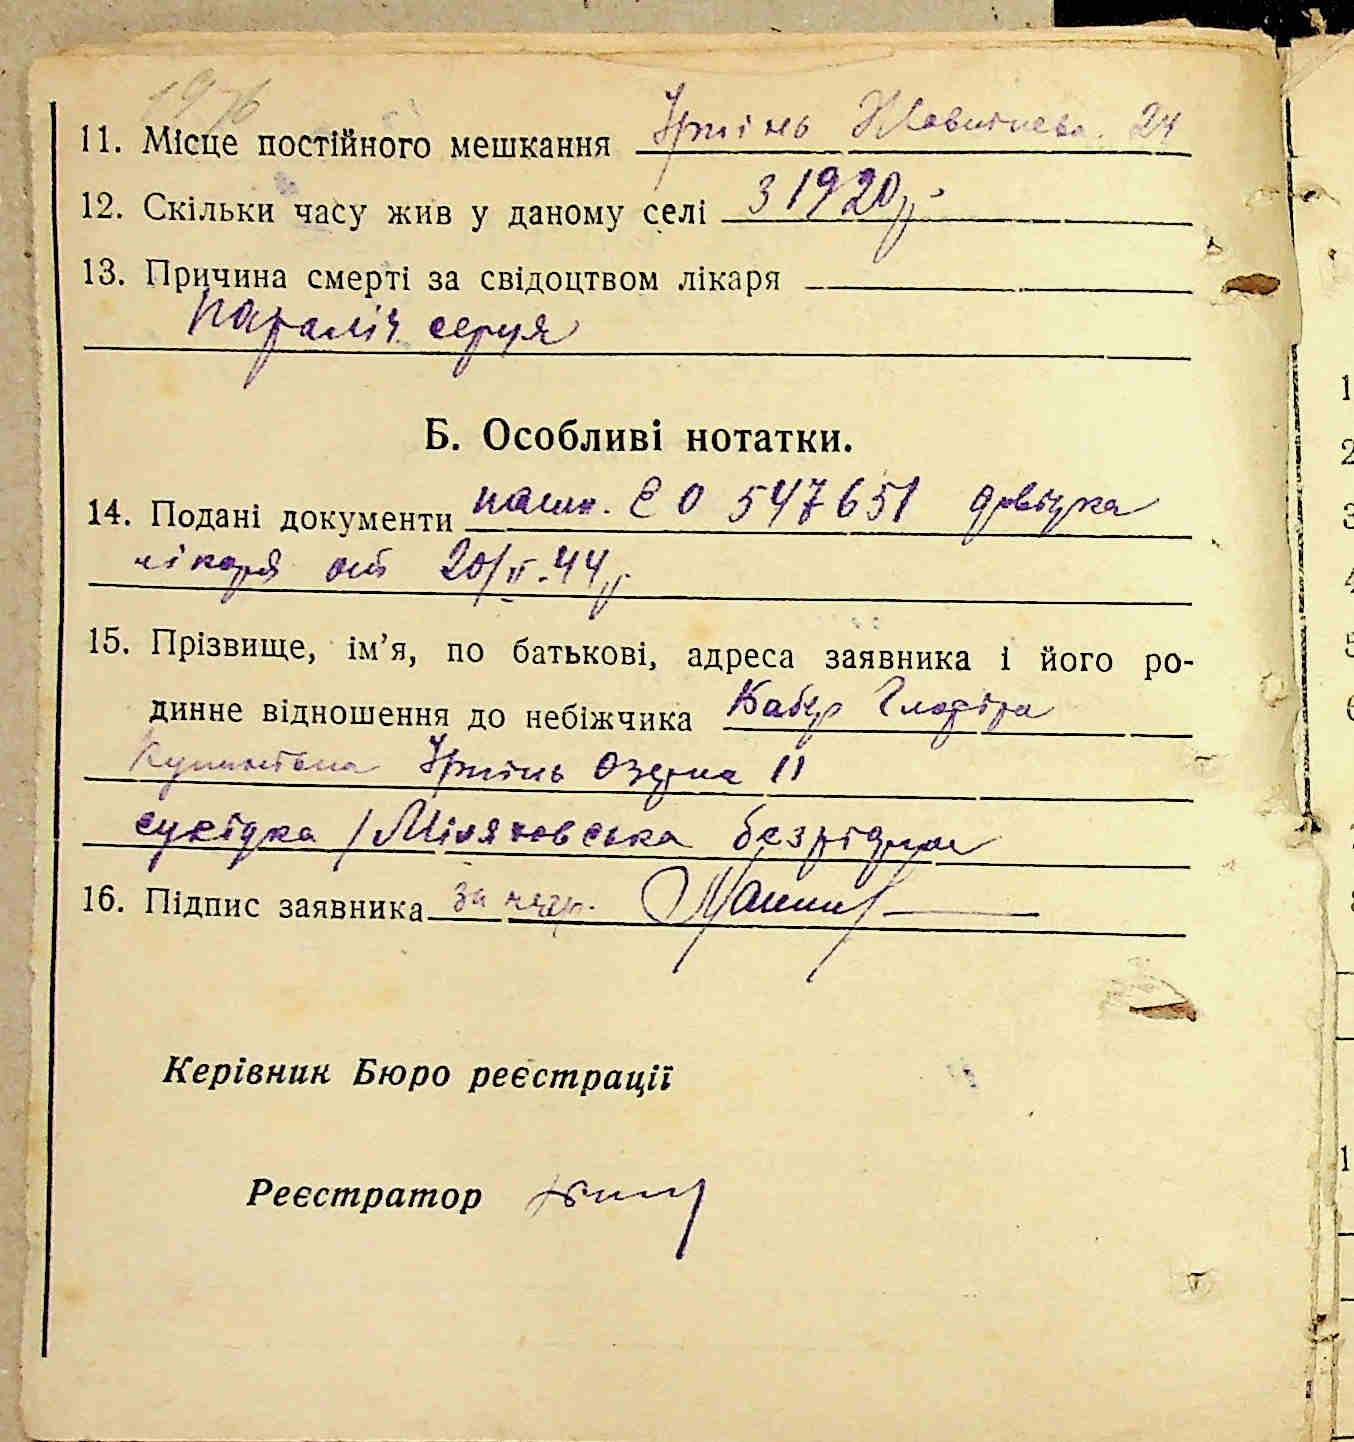 1976
11. Місце постійного мешкання Ірпінь 24
12. Скільки часу жив у даному селі з 1920 р.
13. Причина смерті за свідоцтвом лікаря
параліч серця
Б. Особливі нотатки.
14. Подані документи пашп. ЄО 547651 довідка
лікаря от 20/II.44 р.
15. Прізвище, ім’я, по батькові, адреса заявника і його ро-
динне відношення до небіжчика Глафіра
Ірпінь Озерна 11
сусідка / безрідна
16. Підпис заявника за непр.
Керівник Бюро реєстрації
Реєстратор